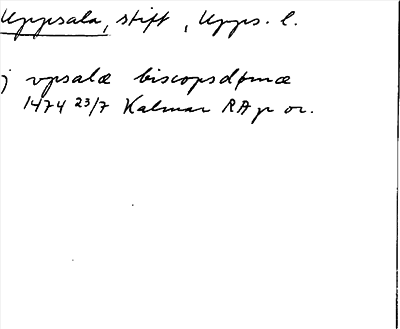 Uppsala, stift, Upps. l.
j vpsalæ biscopsdømæ
1474 23/7 Kalmar RAp or.